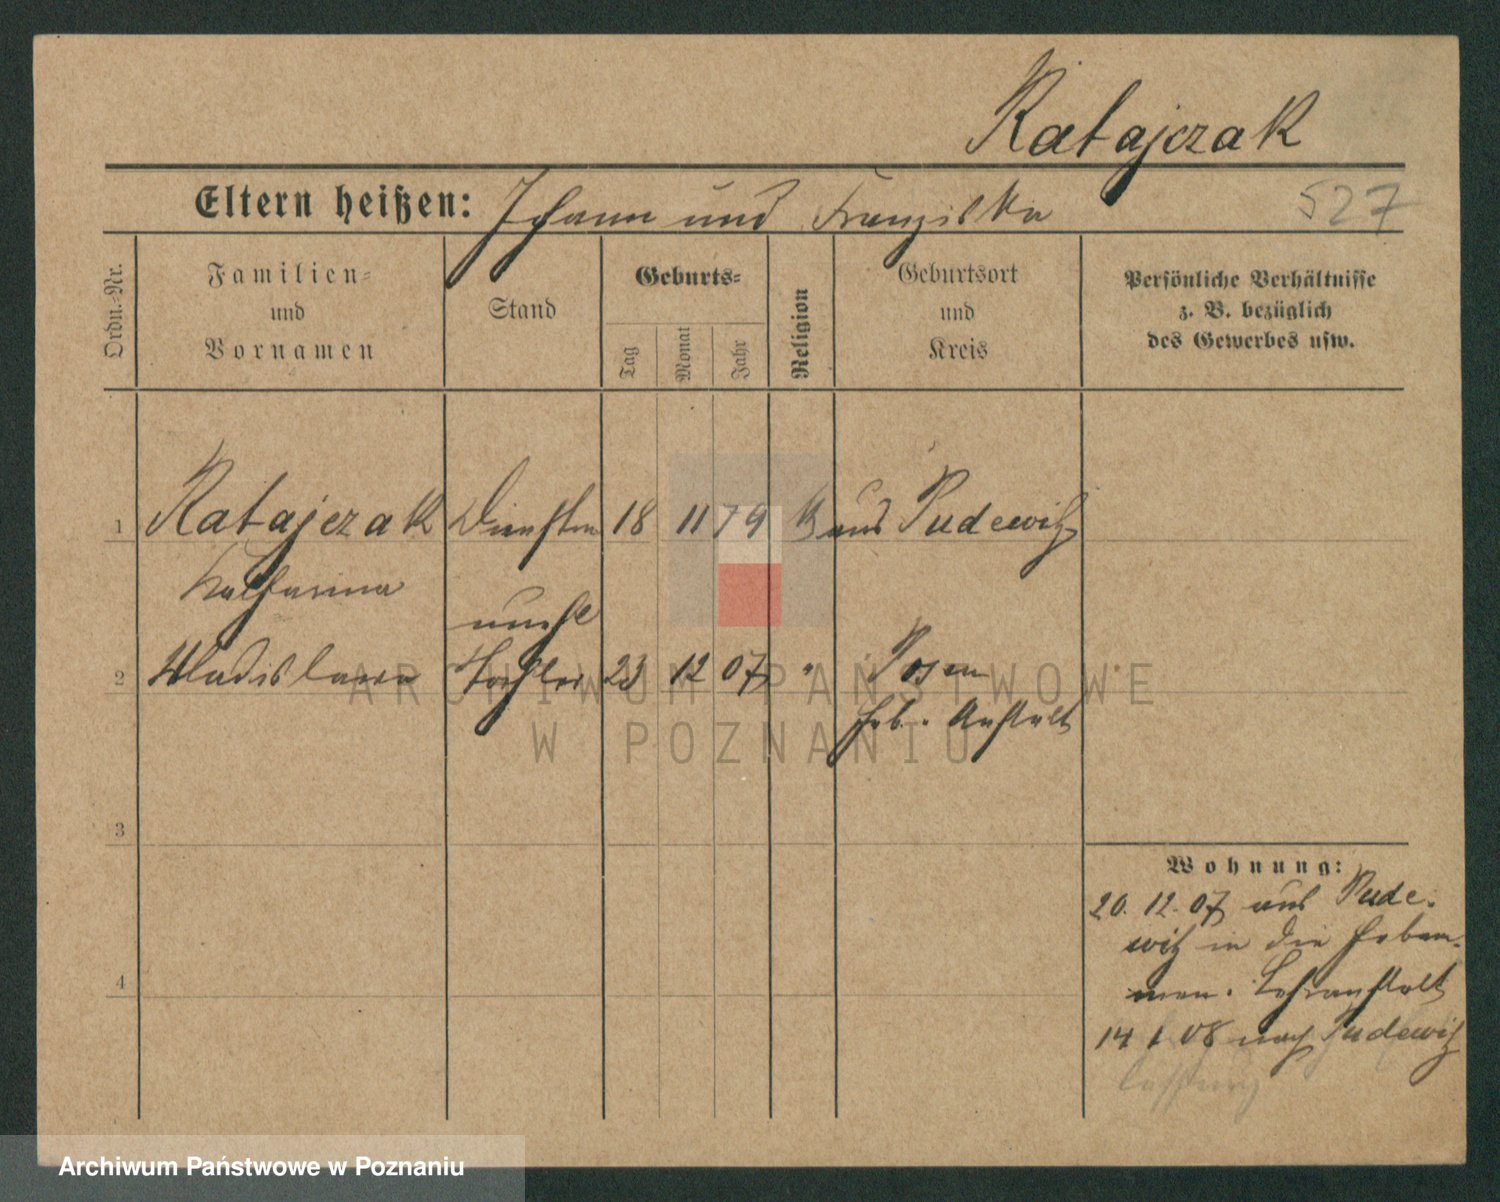 Ratajczak
Eltern heißen: Johann und Franziska 527
Ordn.-Nr.
Familien-
und
Vornamen
Stand
Geburts-
Tag
Monat
Jahr
Religion
Geburtsort
und
Kreis
Persönliche Verhältnisse
z. B. bezüglich
des Gewerbes usw.
1 Ratajczak 18 11 79 k aus Pudewitz
Katharina
unehl
2 Wladislawa Tochter 23 12 07 " Posen
Heb. Anstalt
3
4
Wohnung:
20. 12. 07 aus Pude-
witz in die Hebam-
men. Lehranstalt
14 1 08 nach Pudewitz
ARCHIWUM PAŃSTWOWE
W POZNANIU
Archiwum Państwowe w Poznaniu